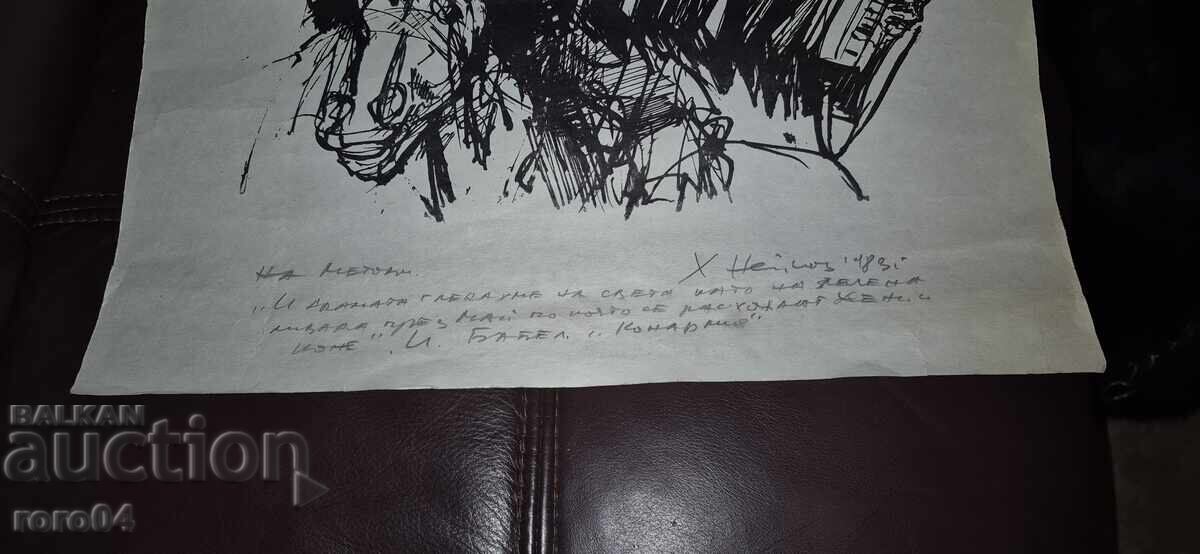 На Методи. Х Нейков '83г
„И двамата гледахме на света като на зелена
ливада през май по която се разхождат жени и
коне" И. Бабел „Конармия"
BALKAN
auction
roro04